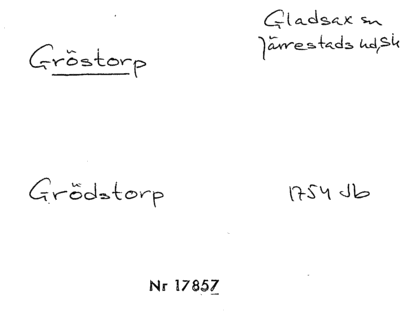 Gladsax sn
Gröstorp
Järrestads hd, Sk
Grödstorp
1754 Jb
Nr 17857